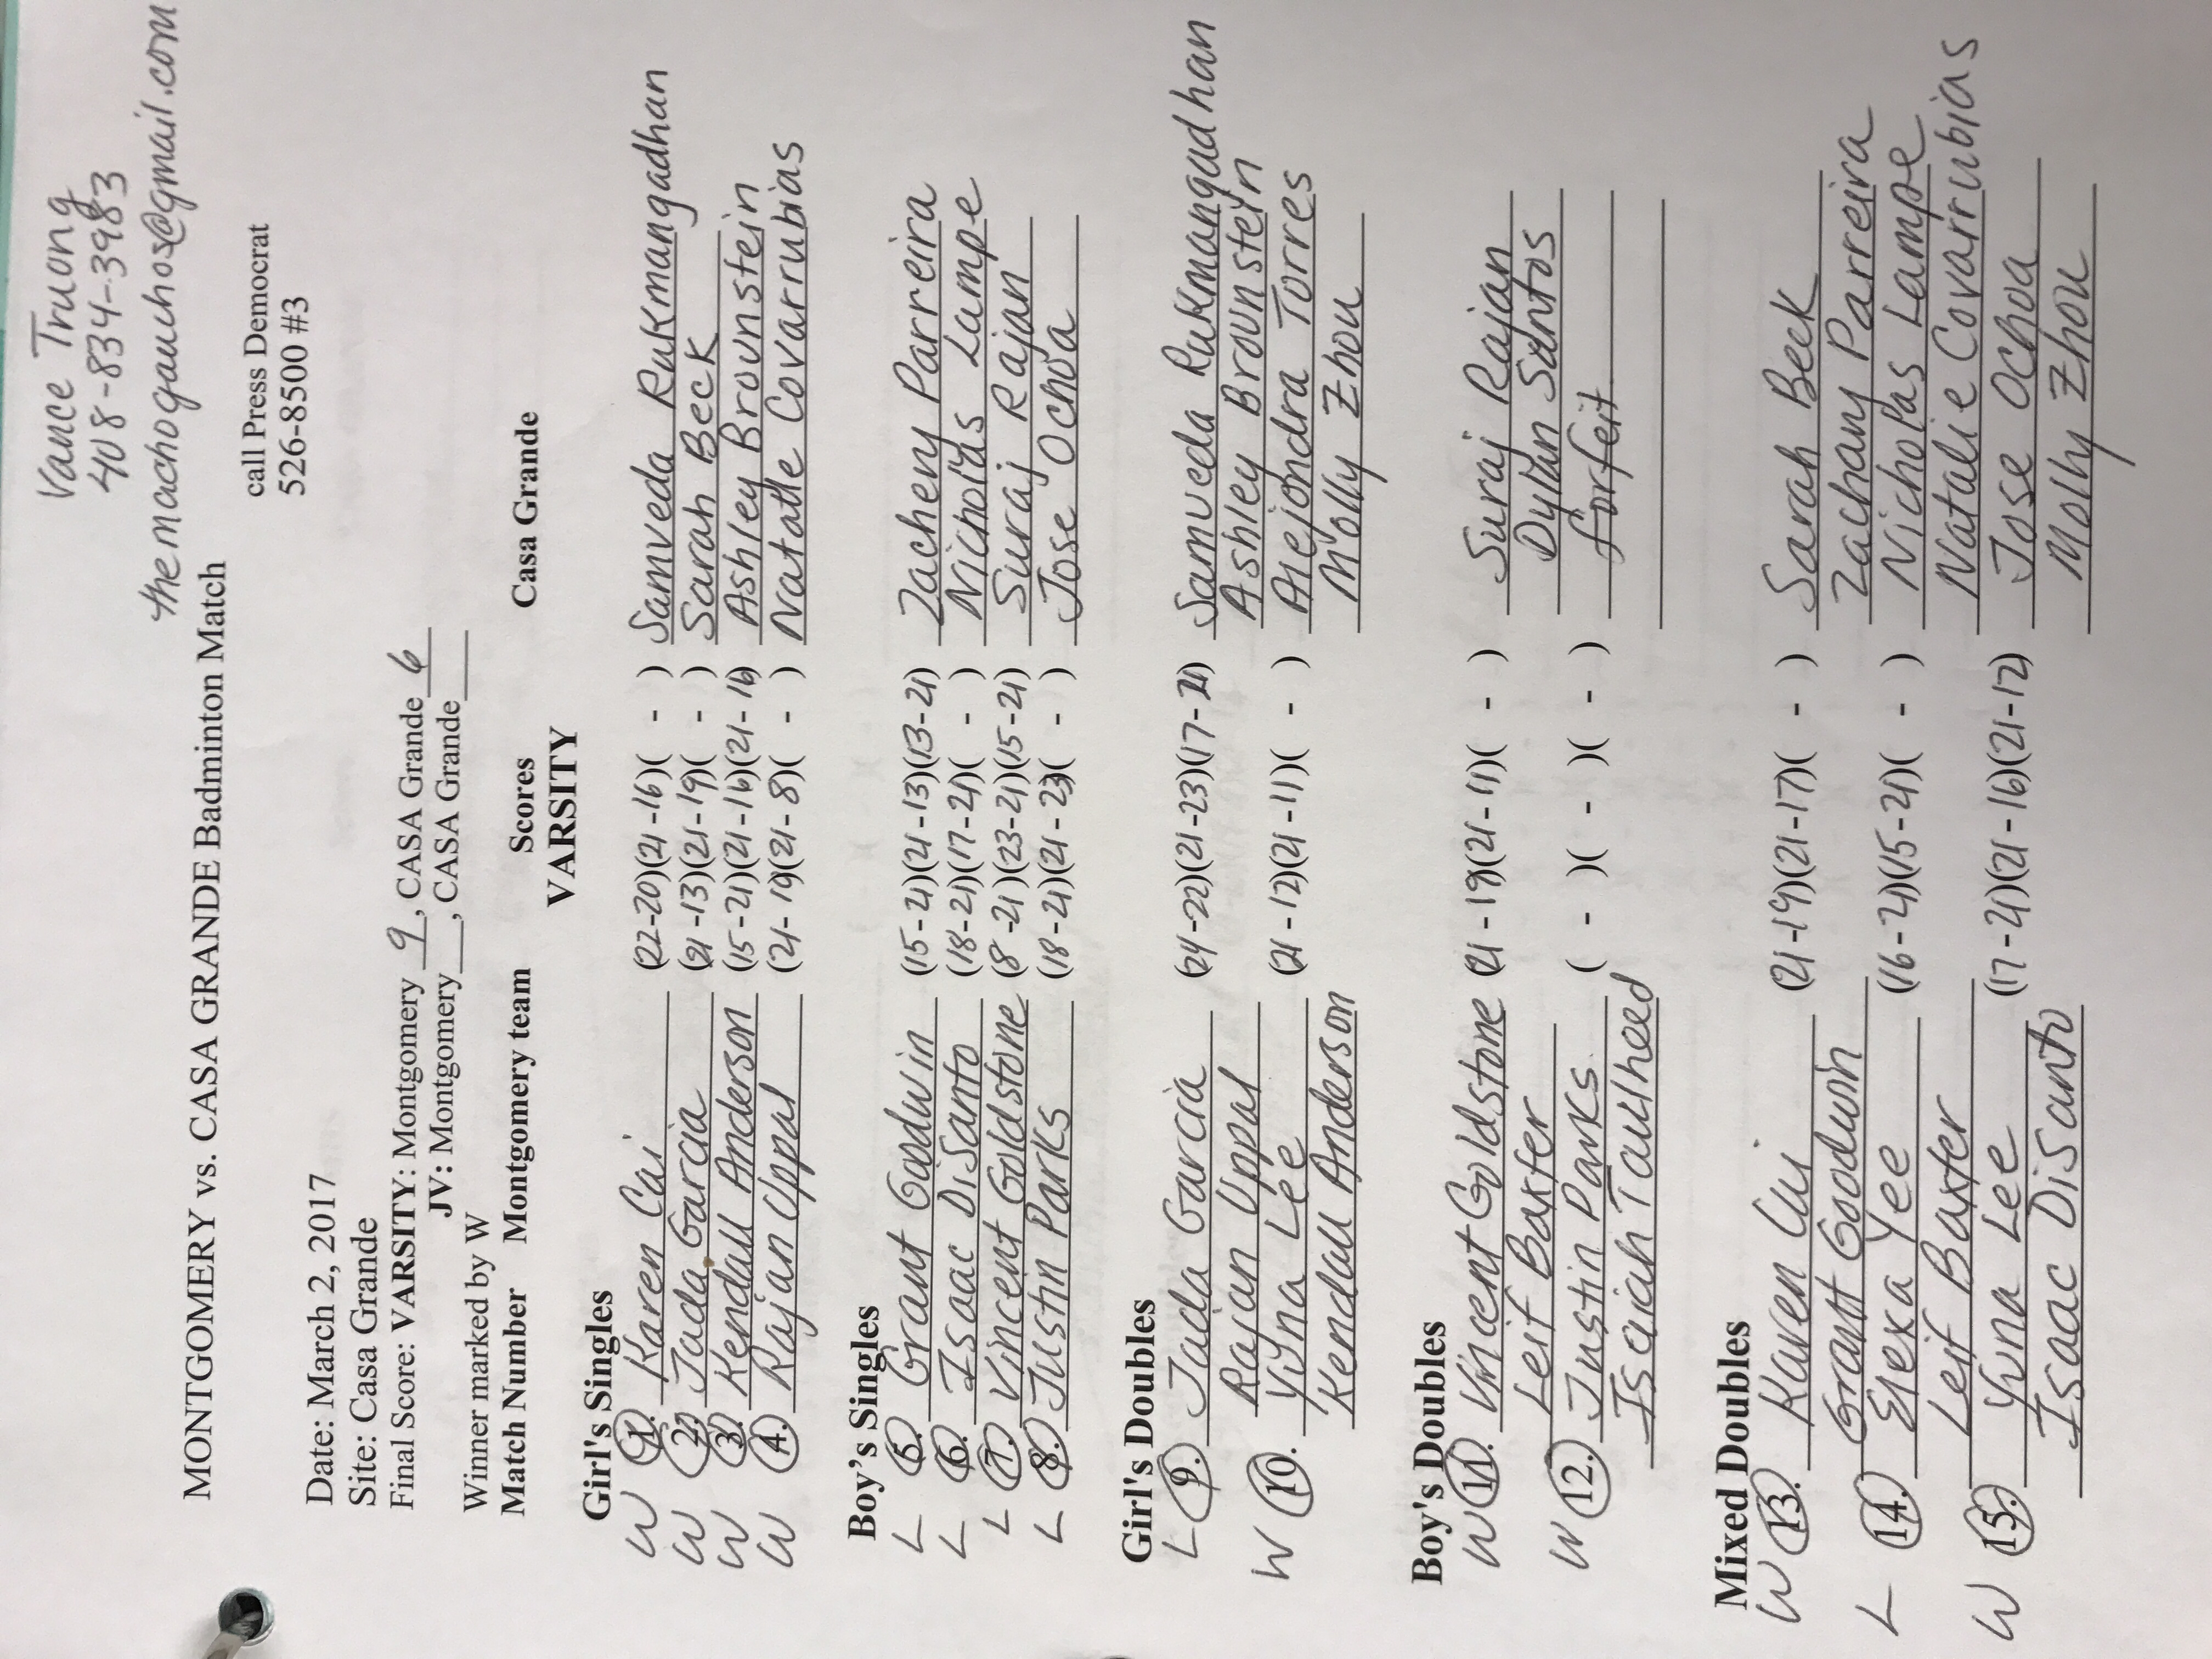 Vance Truong
408-834-3983
themachogauchos@gmail.com
MONTGOMERY vs. CASA GRANDE Badminton Match
call Press Democrat
526-8500 #3
Date: March 2, 2017
Site: Casa Grande
Final Score: VARSITY: Montgomery 9, CASA Grande 6
JV: Montgomery___, CASA Grande___
Winner marked by W
Match Number Montgomery team Scores Casa Grande
VARSITY
Girl's Singles
W 1. Karen Cai (22-20)(21-16)( - ) Samveda Rukmangadhan
W 2. Jada Garcia (21-13)(21-19)( - ) Sarah Beck
W 3. Kendall Anderson (15-21)(21-16)(21-16) Ashley Brounstein
W 4. Rajan Uppal (21-19)(21-8)( - ) Natalie Covarrubias
Boy's Singles
L 5. Grant Goodwin (15-21)(21-13)(13-21) Zacheny Parreira
L 6. Isaac DiSanto (18-21)(17-21)( - ) Nicholas Lampe
L 7. Vincent Goldstone (8-21)(23-21)(15-21) Suraj Rajan
L 8. Justin Parks (18-21)(21-23)( - ) Jose Ochoa
Girl's Doubles
L 9. Jada Garcia (24-22)(21-23)(17-21) Samveda Rukmangadhan
Rajan Uppal Ashley Brounstein
W 10. Yuna Lee (21-12)(21-11)( - ) Alejondra Torres
Kendall Anderson Molly Zhou
Boy's Doubles
W 11. Vincent Goldstone (21-19)(21-11)( - ) Suraj Rajan
Leif Baxter Dyllan Santos
W 12. Justin Parks ( - )( - )( - ) forfeit
Isaiah Taulheed
Mixed Doubles
W 13. Karen Cai (21-19)(21-17)( - ) Sarah Beck
Grant Goodwin Zachany Parreira
L 14. Elexa Yee (16-21)(15-21)( - ) Nicholas Lampe
Leif Baxter Natalie Covarrubias
W 15. Yuna Lee (17-21)(21-16)(21-12) Jose Ochoa
Isaac DiSanto Molly Zhou